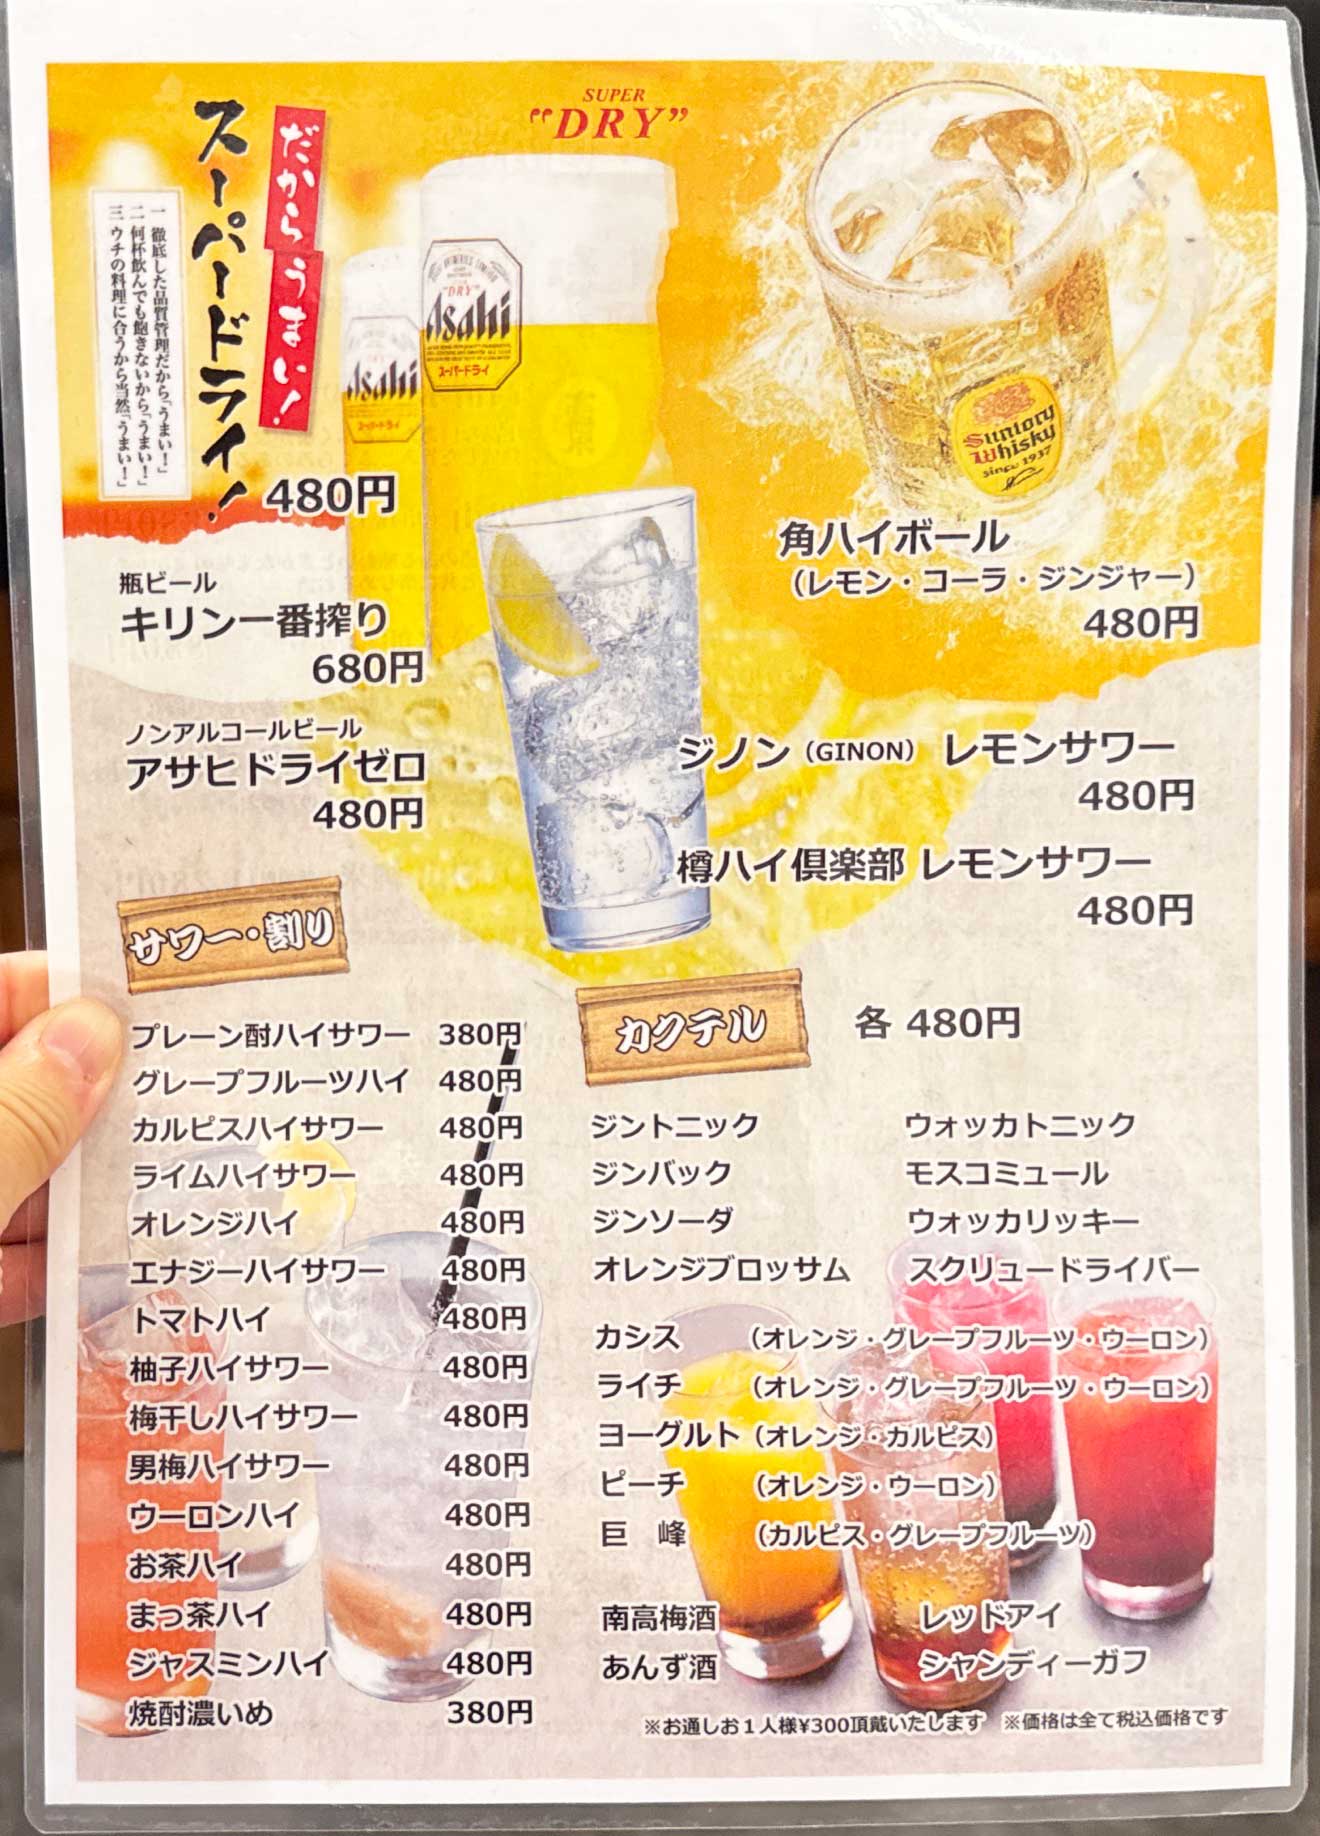 SUPER
"DRY"
だからうまい!
スーパードライ!
一 徹底した品質管理だから「うまい!」
二 何杯飲んでも飽きないから「うまい!」
三 ウチの料理に合うから当然「うまい!」
480円
Asahi
スーパードライ
"DRY"
Asahi
スーパードライ
Suntory
Whisky
since 1937
角ハイボール
(レモン・コーラ・ジンジャー)
480円
瓶ビール
キリン一番搾り
680円
ノンアルコールビール
アサヒドライゼロ
480円
ジノン(GINON) レモンサワー
480円
樽ハイ倶楽部 レモンサワー
480円
サワー・割り
プレーン酎ハイサワー 380円
グレープフルーツハイ 480円
カルピスハイサワー 480円
ライムハイサワー 480円
オレンジハイ 480円
エナジーハイサワー 480円
トマトハイ 480円
柚子ハイサワー 480円
梅干しハイサワー 480円
男梅ハイサワー 480円
ウーロンハイ 480円
お茶ハイ 480円
まっ茶ハイ 480円
ジャスミンハイ 480円
焼酎濃いめ 380円
カクテル 各 480円
ジントニック ウォッカトニック
ジンバック モスコミュール
ジンソーダ ウォッカリッキー
オレンジブロッサム スクリュードライバー
カシス (オレンジ・グレープフルーツ・ウーロン)
ライチ (オレンジ・グレープフルーツ・ウーロン)
ヨーグルト (オレンジ・カルピス)
ピーチ (オレンジ・ウーロン)
巨 峰 (カルピス・グレープフルーツ)
南高梅酒 レッドアイ
あんず酒 シャンディーガフ
※お通しお1人様¥300頂戴いたします ※価格は全て税込価格です